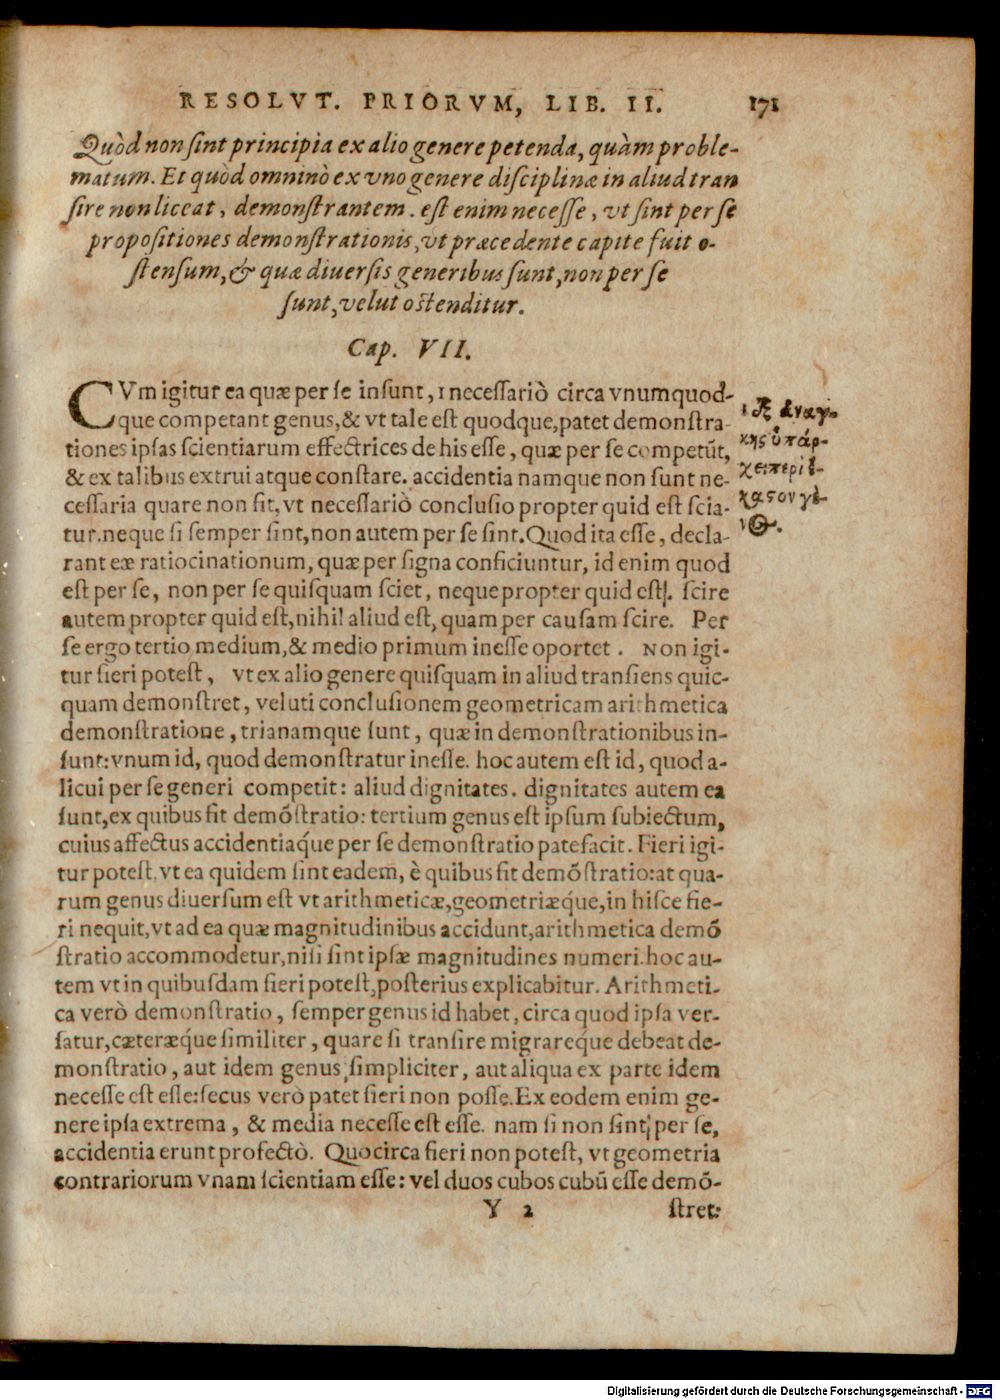 RESOLVT. PRIORVM, LIB. II. 171
Quòd non sint principia ex alio genere petenda, quàm proble-
matum. Et quòd omninò ex vno genere disciplinæ in aliud tran
sire non liceat, demonstrantem. est enim necesse, vt sint per se
propositiones demonstrationis, vt præcedente capite fuit o-
stensum, & quæ diuersis generibus sunt, non per se
sunt, velut ostenditur.
Cap. VII.
CVm igitur ea quæ per se insunt, 1 necessariò circa vnumquod-
que competant genus, & vt tale est quodque, patet demonstra-
tiones ipsas scientiarum effectrices de his esse, quæ per se competūt,
& ex talibus extrui atque constare. accidentia namque non sunt ne-
cessaria quare non sit, vt necessariò conclusio propter quid est scia-
tur. neque si semper sint, non autem per se sint. Quod ita esse, decla-
rant eæ ratiocinationum, quæ per signa conficiuntur, id enim quod
est per se, non per se quisquam sciet, neque propter quid est. scire
autem propter quid est, nihil aliud est, quam per causam scire. Per
se ergo tertio medium, & medio primum inesse oportet. Non igi-
tur fieri potest, vt ex alio genere quisquam in aliud transiens quic-
quam demonstret, veluti conclusionem geometricam arithmetica
demonstratione, tria namque sunt, quæ in demonstrationibus in-
sunt: vnum id, quod demonstratur inesse. hoc autem est id, quod a-
licui per se generi competit: aliud dignitates. dignitates autem ea
sunt, ex quibus fit demōstratio: tertium genus est ipsum subiectum,
cuius affectus accidentiaq́ue per se demonstratio patefacit. Fieri igi-
tur potest, vt ea quidem sint eadem, è quibus fit demōstratio: at qua-
rum genus diuersum est vt arithmeticæ, geometriæq́ue, in hisce fie-
ri nequit, vt ad ea quæ magnitudinibus accidunt, arithmetica demō
stratio accommodetur, nisi sint ipsæ magnitudines numeri. hoc au-
tem vt in quibusdam fieri potest, posterius explicabitur. Arithmeti-
ca verò demonstratio, semper genus id habet, circa quod ipsa ver-
satur, cæteræq́ue similiter, quare si transire migrareq́ue debeat de-
monstratio, aut idem genus, simpliciter, aut aliqua ex parte idem
necesse est esse: secus verò patet fieri non posse. Ex eodem enim ge-
nere ipsa extrema, & media necesse est esse. nam si non sint per se,
accidentia erunt profectò. Quocirca fieri non potest, vt geometria
contrariorum vnam scientiam esse: vel duos cubos cubū esse demō-
Y 2 stret:
1 ἐξ ἀναγ-
κης ὑπάρ-
χει περὶ ἕ-
καστον γέ-
νος.
Digitalisierung gefördert durch die Deutsche Forschungsgemeinschaft - DFG